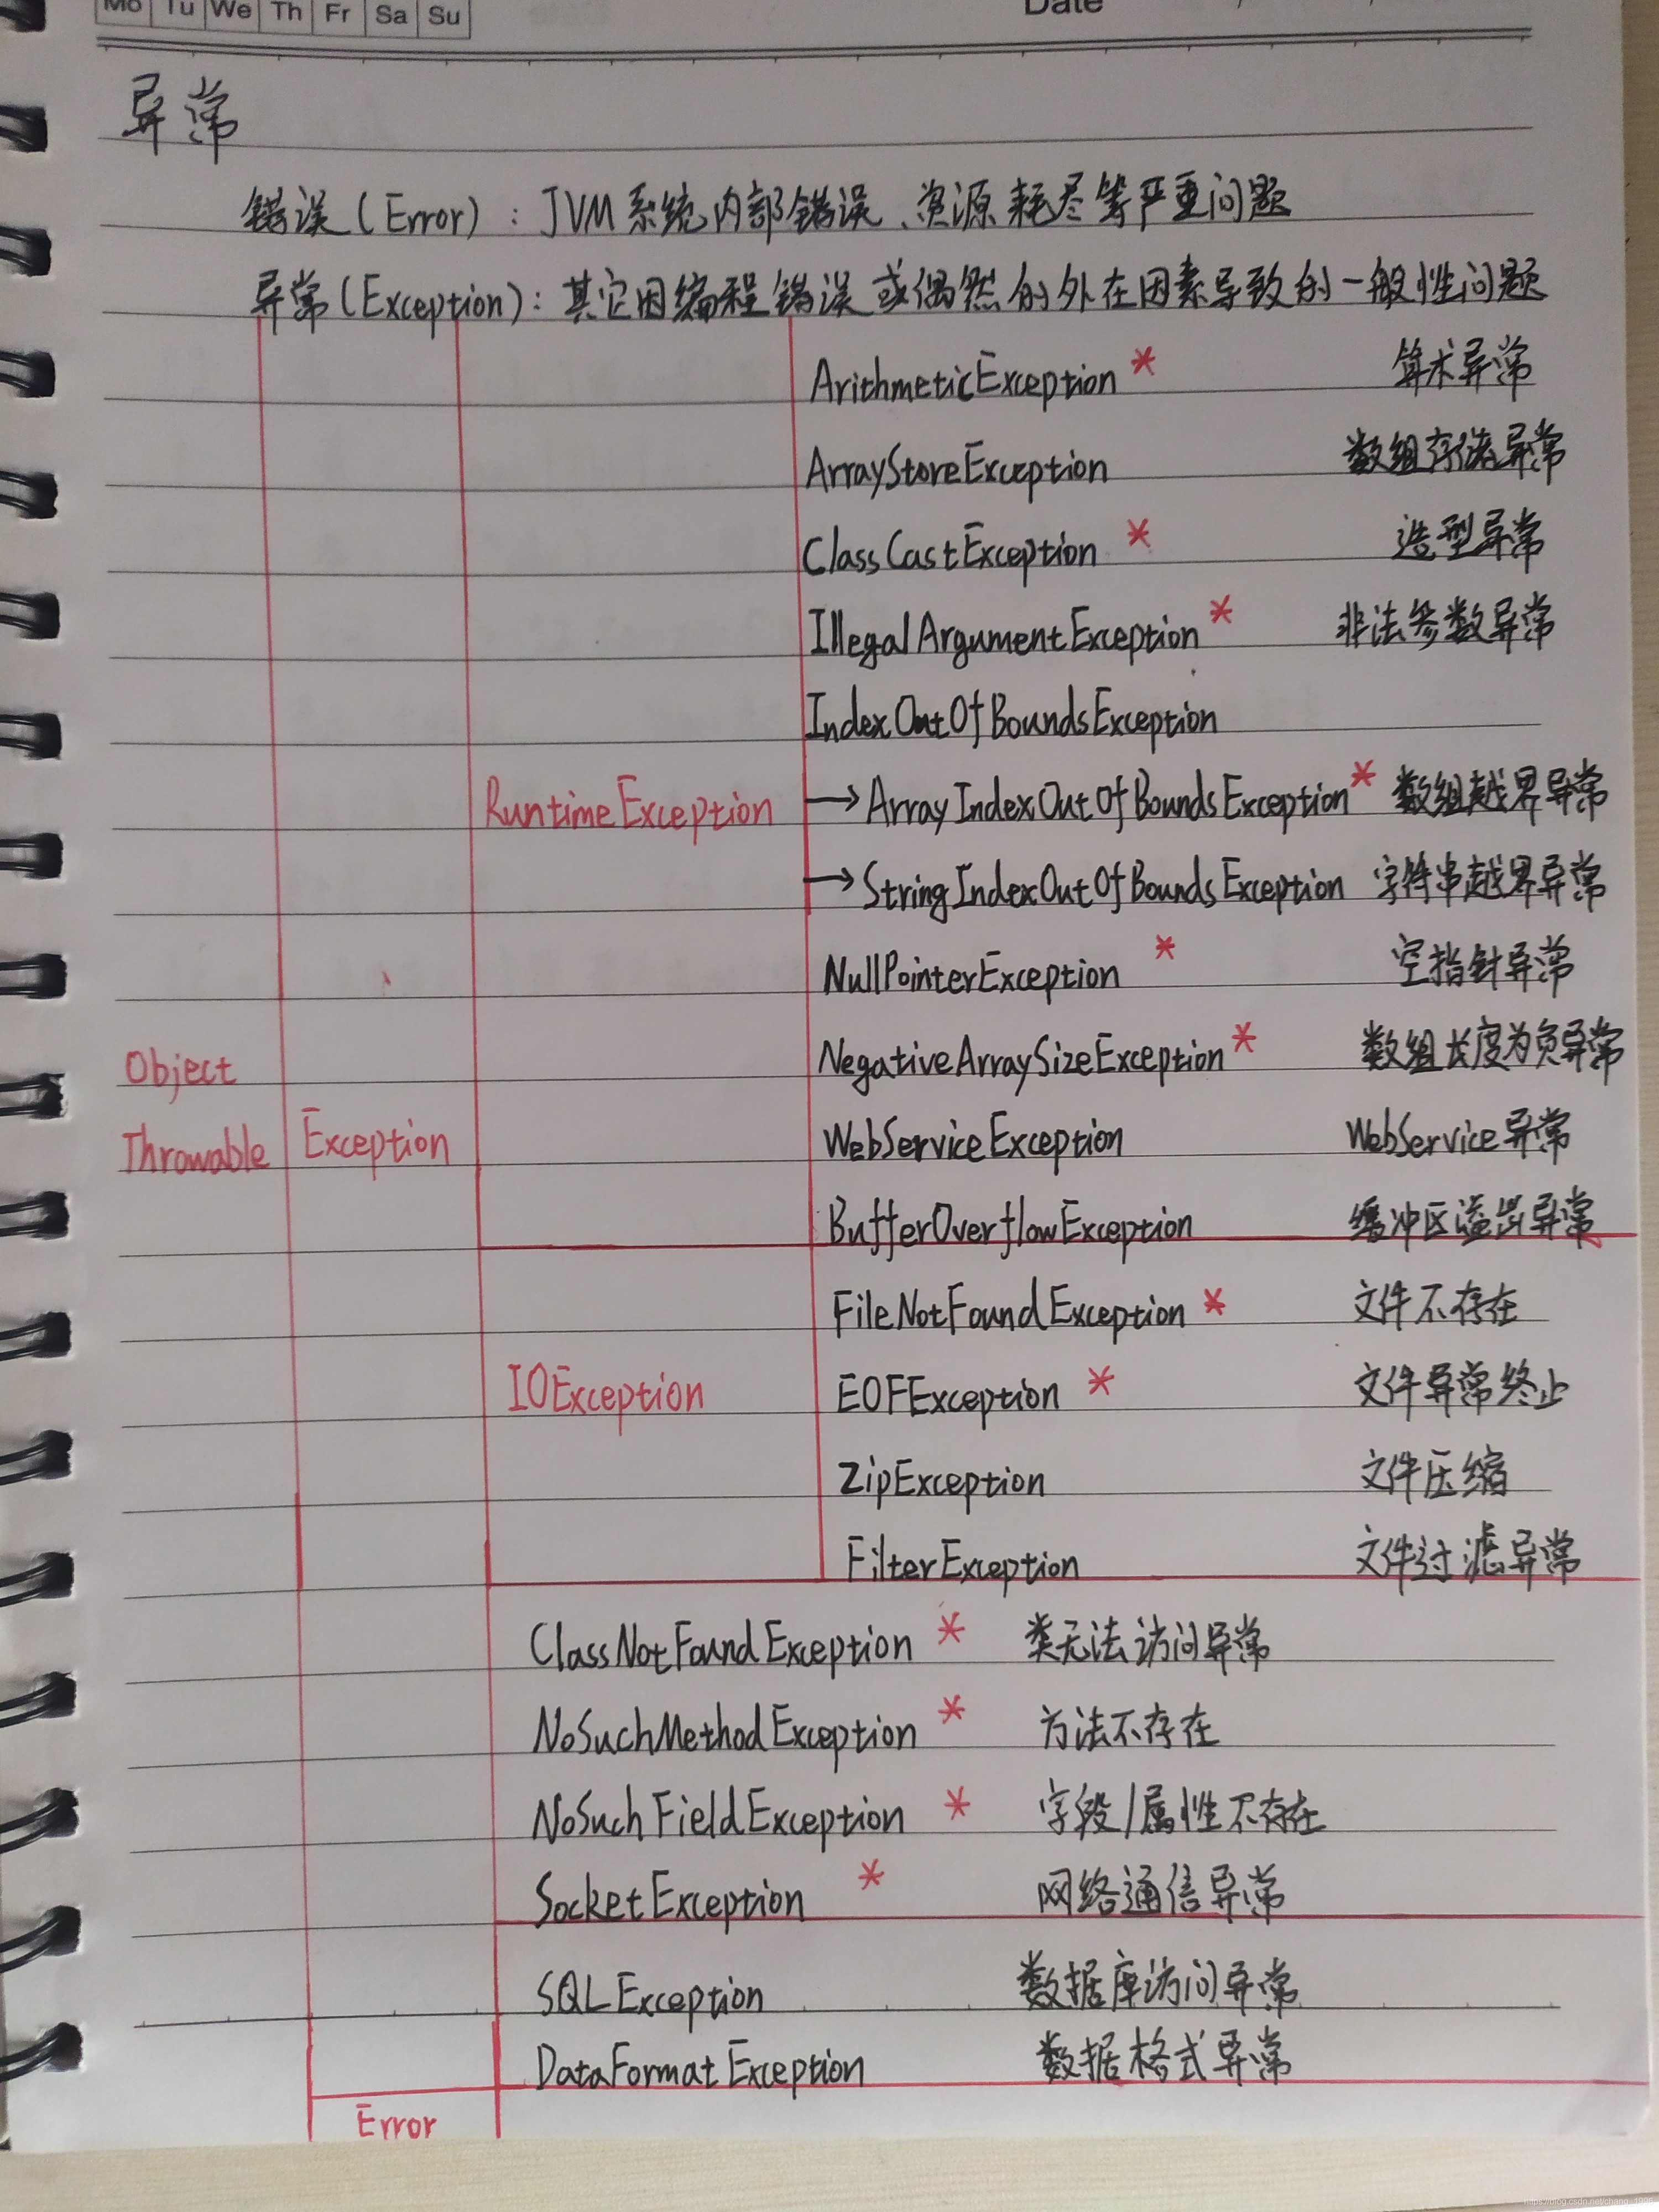 Mo Tu We Th Fr Sa Su Date
异常
错误(Error): JVM系统内部错误、资源耗尽等严重问题
异常(Exception): 其它因编程错误或偶然的外在因素导致的一般性问题
ArithmeticException * 算术异常
ArrayStoreException 数组存储异常
ClassCastException * 造型异常
IllegalArgumentException * 非法参数异常
IndexOutOfBoundsException
RuntimeException → ArrayIndexOutOfBoundsException * 数组越界异常
→ StringIndexOutOfBoundsException 字符串越界异常
NullPointerException * 空指针异常
Object NegativeArraySizeException * 数组长度为负异常
Throwable Exception WebServiceException WebService异常
BufferOverflowException 缓冲区溢出异常
FileNotFoundException * 文件不存在
IOException EOFException * 文件异常终止
ZipException 文件压缩
FilterException 文件过滤异常
ClassNotFoundException * 类无法访问异常
NoSuchMethodException * 方法不存在
NoSuchFieldException * 字段/属性不存在
SocketException * 网络通信异常
SQLException 数据库访问异常
DataFormatException 数据格式异常
Error